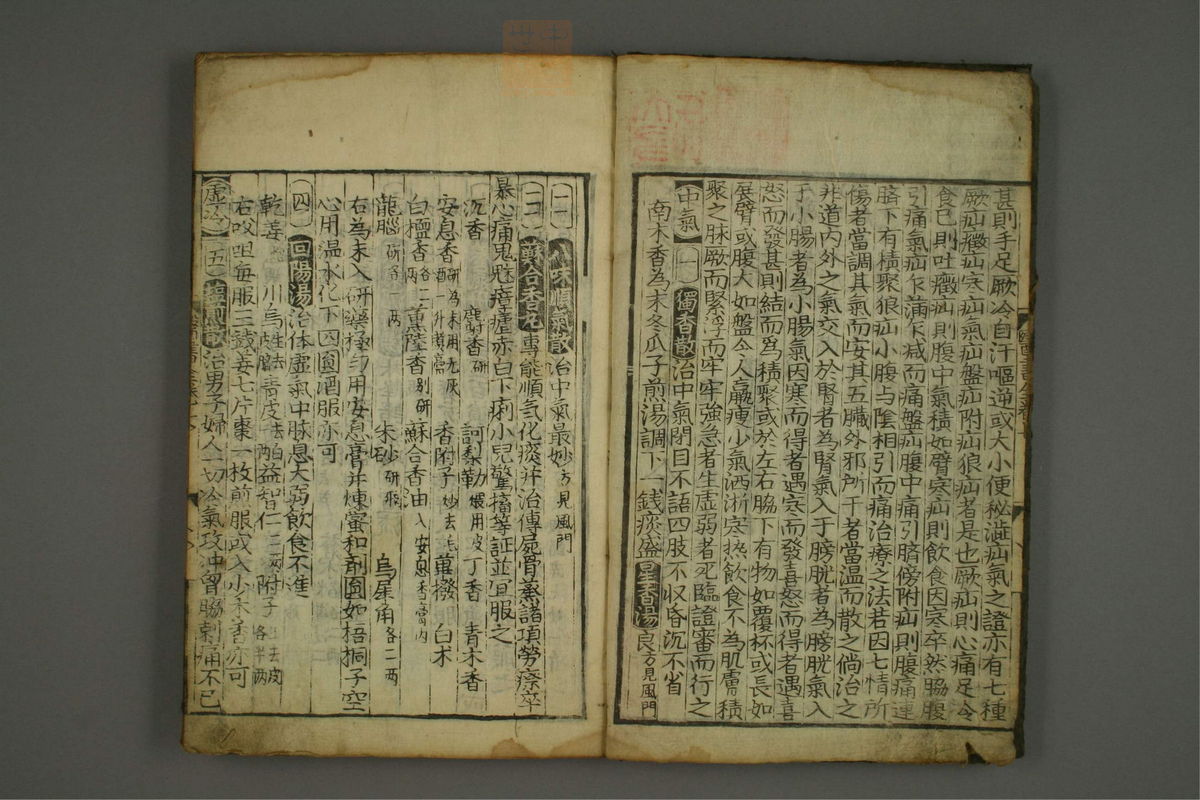 甚則手足厥冷自汗嘔逆或大小便秘澁疝氣之證亦有七種
厥疝癥疝寒疝氣疝盤疝附疝狼疝者是也厥疝則心痛足冷
食已則吐癥疝則腹中氣積如臂寒疝則飲食因寒卒然脇腹
引痛氣疝乍滿乍减而痛盤疝腹中痛引臍傍附疝則腹痛連
臍下有積聚狼疝小腹与陰相引而痛治療之法若因七情所
傷者當調其氣而安其五臟外邪所干者當温而散之倘治之
非道内外之氣交入於腎者為腎氣入于膀胱者為膀胱氣入
于小腸者為小腸氣因寒而得者遇寒而發喜怒而得者遇喜
怒而發甚則結而為積聚或於左右脇下有物如覆杯或長如
展臂或腹大如盤令人羸瘦少氣洒淅寒热飲食不為肌膚積
聚之脉厥而緊浮而牢牢強急者生虚弱者死臨證審而行之
中氣 一 獨香散 治中氣閉目不語四肢不収昏沉不省
南木香為末冬瓜子煎湯調下一錢痰盛 星香湯 良方見風門
二 八味順氣散 治中氣最妙方見風門
三 蘇合香丸 專能順気化痰并治傳屍骨蒸諸項勞瘵卒
暴心痛鬼魅瘴瘧赤白下痢小兒驚搐等証並宜服之
沉香 麝香研 訶梨勒煨用皮 丁香 青木香
安息香研為末用无灰酒一升熬膏 香附子炒去毛 蓽撥 白术
白檀香各二兩 薫陸香别研 蘇合香油入安息香膏内
龍腦研各一兩 朱砂研飛 烏犀角各二兩
右為末入研藥極匀用安息膏并煉蜜和剤圓如梧桐子空
心用温水化下四圓酒服亦可
四 回陽湯 治体虚氣中肢息大弱飲食不進
乾姜 川烏 青皮 益智仁 附子
右㕮咀每服三錢姜七片棗一枚煎服或入少木香亦可
虚冷 五 鹽煎散 治男子婦人一切冷氣攻冲胷脇刺痛不已